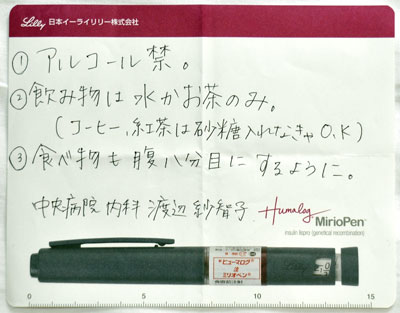 Lilly 日本イーライリリー株式会社
① アルコール禁。
② 飲み物は水かお茶のみ。
(コーヒー、紅茶は砂糖入れなきゃO.K)
③ 食べ物も腹八分目にするように。
中央病院 内科 渡辺 紗智子
Humalog
MirioPen
insulin lispro (genetical recombination)
Lilly
"ヒューマログ"
注
ミリオペン
0 5 10 15